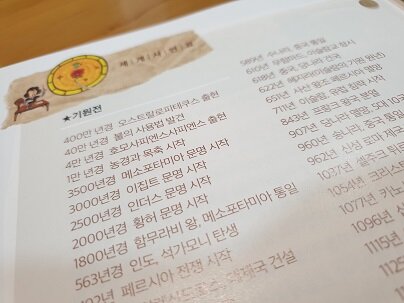 세계사연표
★기원전
400만 년경 오스트랄로피테쿠스 출현
40만 년경 불의 사용법 발견
4만 년경 호모사피엔스사피엔스 출현
1만 년경 농경과 목축 시작
3500년경 메소포타미아 문명 시작
3000년경 이집트 문명 시작
2500년경 인더스 문명 시작
2000년경 황허 문명 시작
1800년경 함무라비 왕, 메소포타미아 통일
563년경 인도, 석가모니 탄생
492년 페르시아 전쟁 시작
대제국 건설
589년 수나라, 중국 통일
610년 무함마드 이슬람교 창시
618년 중국, 당나라 건국
622년 헤지라(이슬람의 기원 원년)
651년 사산 왕조 페르시아 멸망
711년 이슬람, 유럽 침략 시작
843년 프랑크 왕국 분열
907년 당나라 멸망, 5대 10국
960년 송나라, 중국 통일
962년 신성 로마 제국
1037년 셀주크 튀르크
1054년 크리스트
1077년 카노
1096년 십
1115년
1125